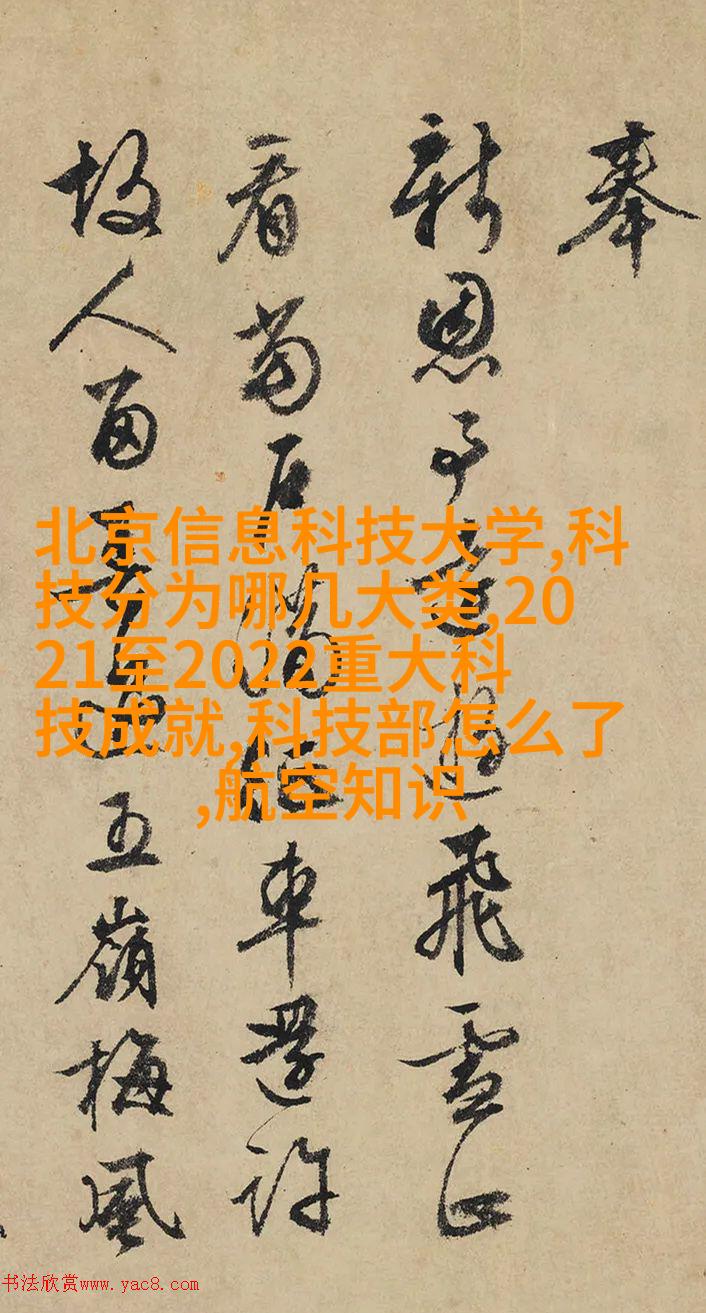 奉
新恩予飛雪正
看車還許
故人留五嶺梅風
北京信息科技大学,科
技分为哪几大类,20
21至2022重大科
技成就,科技部怎么了
,航空知识
书法欣赏www.yac8.com